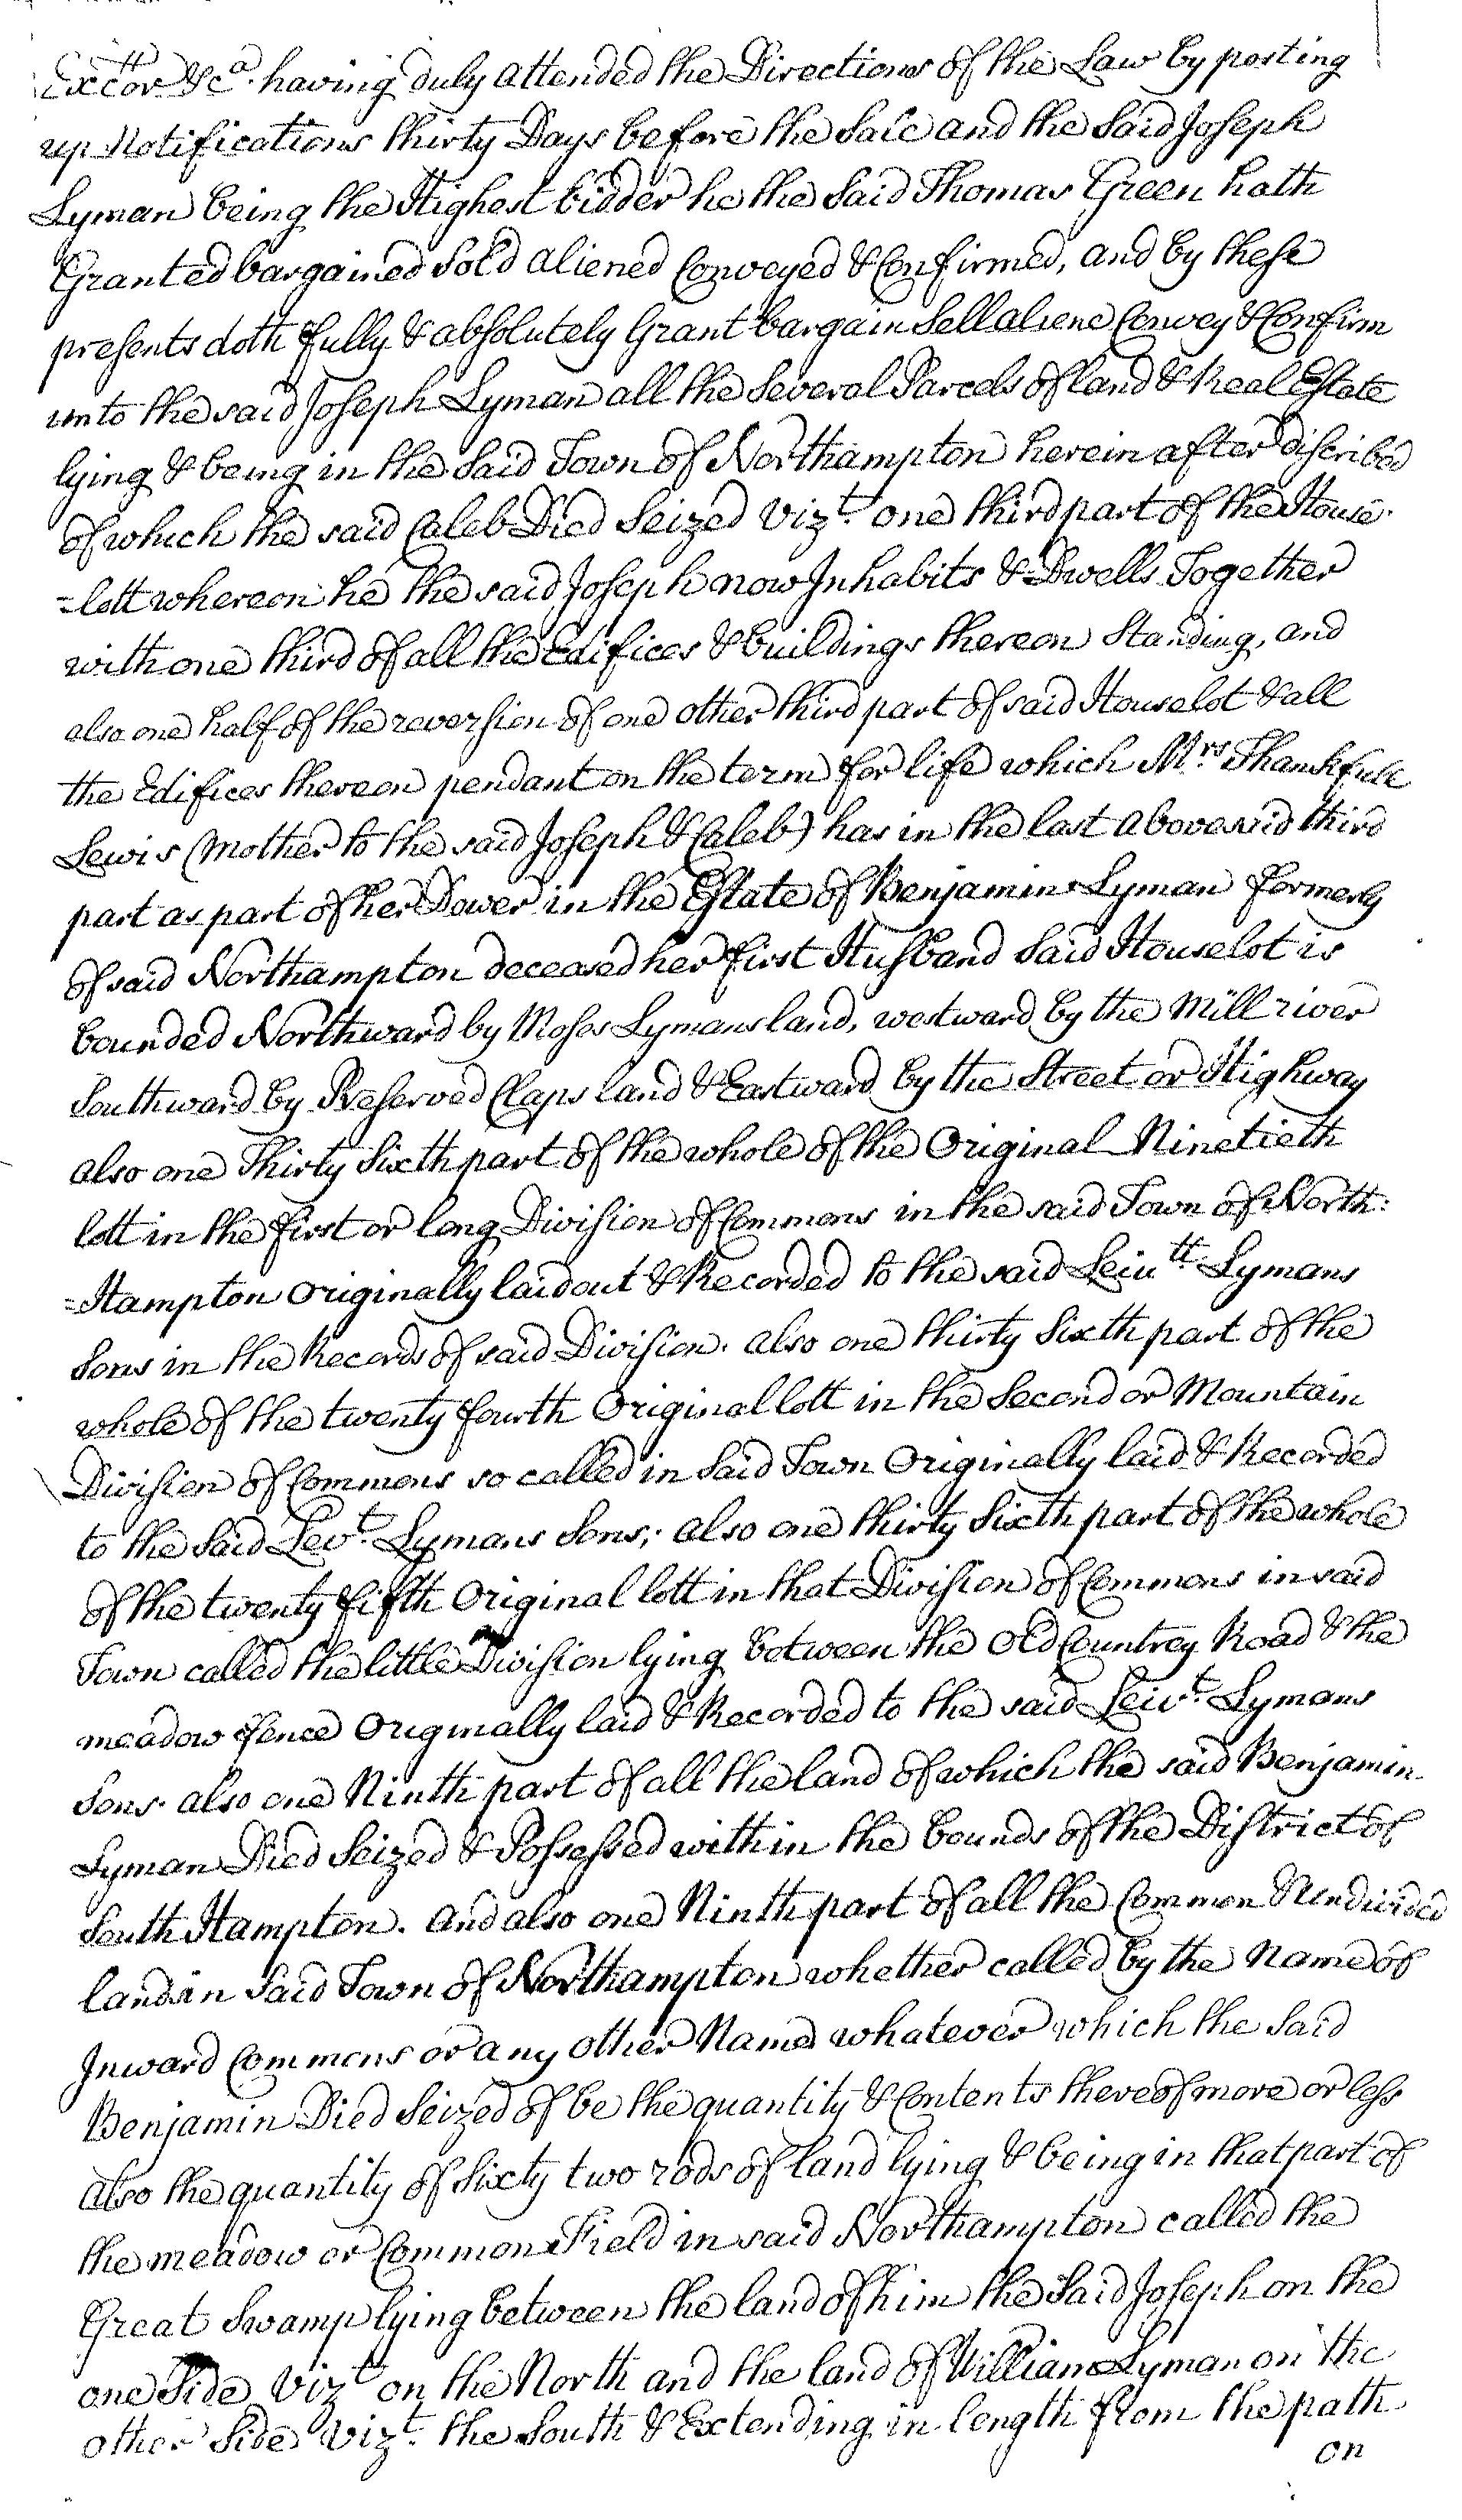 Exctor &ca. having duly attended the Directions of the Law by posting
up Notifications thirty Days before the Sale and the Said Joseph
Lyman being the Highest bidder he the Said Thomas Green hath
Granted bargained Sold aliened Conveyed & Confirmed, and by these
presents doth fully & absolutely Grant bargain Sell aliene Convey & Confirm
unto the said Joseph Lyman all the Several Parcels of land & Real Estate
lying & being in the Said Town of Northampton herein after discribed
of which the said Caleb Died Seized vizt. one third part of the House
=lott whereon he the said Joseph now Inhabits & Dwells Together
with one third of all the Edifices & buildings thereon Standing, and
also one half of the reversion of one other third part of said Houselot & all
the Edifices thereon pendant on the term for life which Mrs. Thankfull
Lewis (Mother to the said Joseph & Caleb) has in the last abovesaid third
part as part of her Dower in the Estate of Benjamin Lyman formerly
of said Northampton deceased her first Husband Said Houselot is
bounded Northward by Moses Lymans land, westward by the Mill river
Southward by Preserved Claps land & Eastward by the Street or Highway
also one Thirty Sixth part of the whole of the Original Ninetieth
lott in the first or long Division of Commons in the said Town of North:
=Hampton Originally laid out & Recorded to the said Leiutt. Lymans
Sons in the Records of said Division. also one thirty Sixth part of the
whole of the twenty fourth Original lott in the Second or Mountain
Division of Commons so called in Said Town Originally laid & Recorded
to the Said Levt. Lymans Sons; also one thirty Sixth part of the whole
of the twenty fifth Original lott in that Division of Commons in said
Town called the little Division lying between the Old Countrey Road & the
meadow fence Originally laid & Recorded to the said Leivt. Lymans
Sons. also one Ninth part of all the land of which the said Benjamin
Lyman Died Seized & Possessed within the bounds of the District of
South Hampton. And also one Ninth part of all the Common & Undivided
land in Said Town of Northampton whether called by the Name of
Inward Commons or any other Name whatever which the Said
Benjamin Died Seized of be the quantity & Contents thereof more or less
also the quantity of Sixty two rods of land lying & being in that part of
the meadow or Common Field in said Northampton called the
Great Swamp lying between the land of him the Said Joseph on the
one Side Vizt on the North and the land of William Lyman on the
other Side Vizt. the South & Extending in length from the path
on